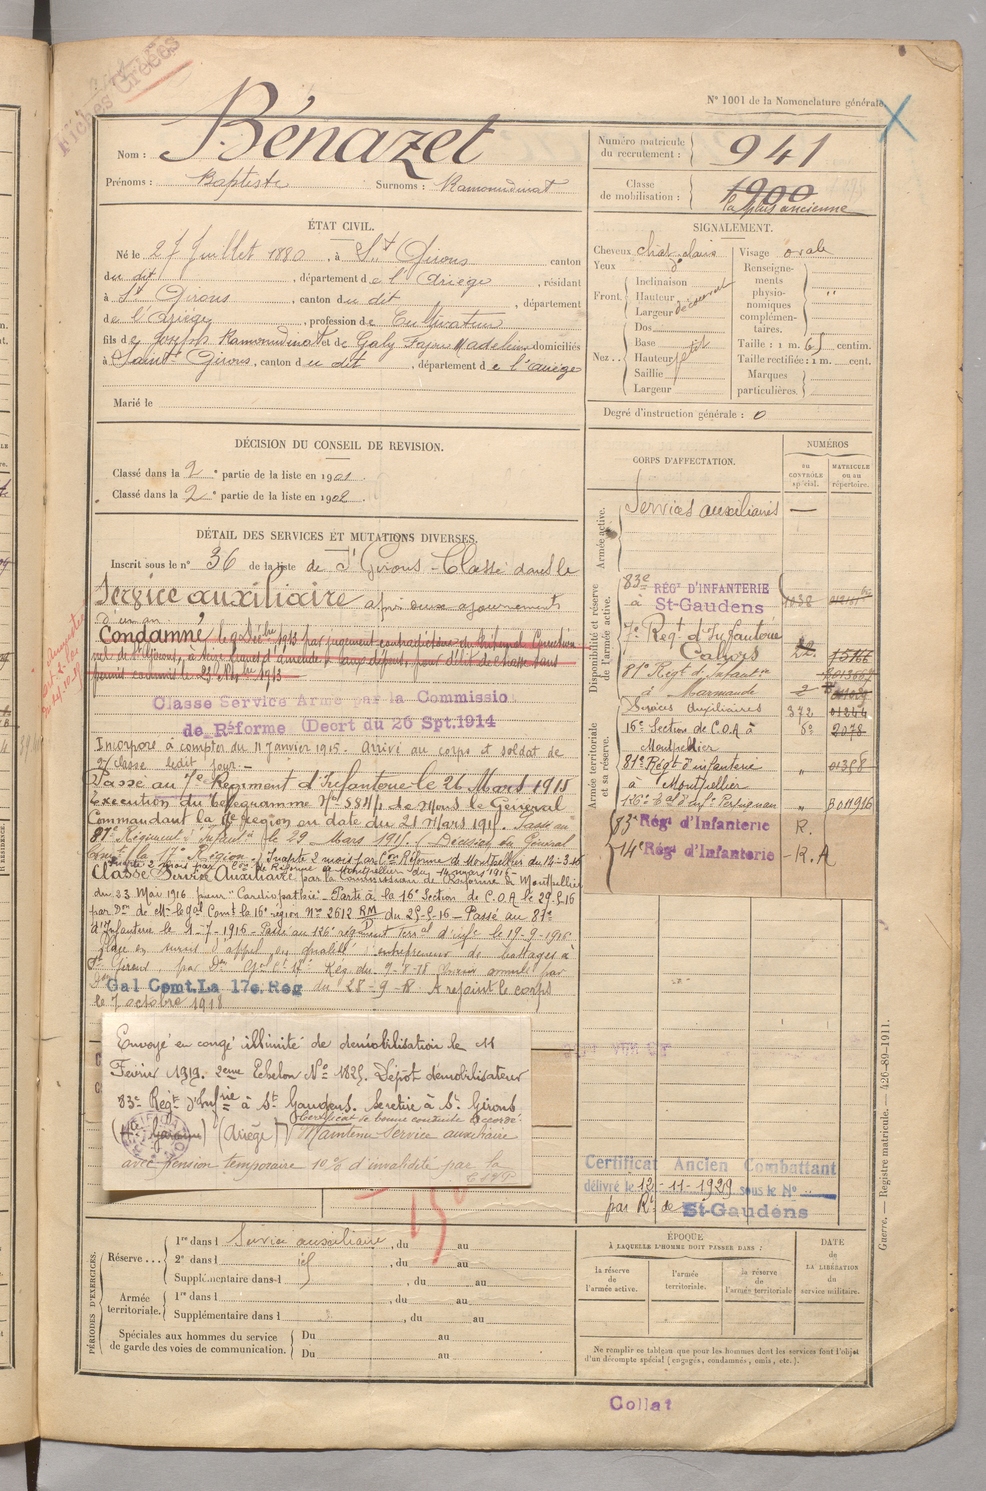 Fiches Créées
N° 1001 de la Nomenclature générale
Nom : Bénazet
Prénoms : Baptiste Surnoms : Ramounidinat
Numéro matricule du recrutement : 941
Classe de mobilisation : 1900
la plus ancienne
ÉTAT CIVIL.
Né le 27 Juillet 1880, à St Girons canton
du dit, département de l'Ariège, résidant
à St Girons, canton du dit, département
de l'Ariège, profession de Cultivateur
fils de Joseph Ramounidinat et de Galy Fajou Madeleine domiciliés
à Saint Girons, canton du dit, département de l'Ariège
Marié le
SIGNALEMENT.
Cheveux chat. claire Visage ovale
Yeux do
Front. Inclinaison
Hauteur
Largeur découvert
Nez. Dos
Base
Hauteur petit
Saillie
Largeur
Renseignements physionomiques complémentaires. "
Taille : 1 m. 65 centim.
Taille rectifiée : 1 m. cent.
Marques particulières.
Degré d'instruction générale : 0
DÉCISION DU CONSEIL DE REVISION.
Classé dans la 2e partie de la liste en 1901
Classé dans la 2e partie de la liste en 1902
DÉTAIL DES SERVICES ET MUTATIONS DIVERSES.
Inscrit sous le n° 36 de la liste de St Girons - Classé dans le
Service auxiliaire après deux ajournements
d'un an.
Condamné le 9 Débre 1913 par jugement contradictoire du tribunal Correction
nel de St Girons, à seize francs d'amende & aux dépens, pour délit de chasse sans
permis commis le 23 Nbre 1913
Classe Service Armé par la Commissio
de Réforme (Decrt du 26 Spt.1914
Incorporé à compter du 11 Janvier 1915. Arrivé au corps et soldat de
2e classe ledit jour.
Passé au 7e Régiment d'Infanterie le 26 Mars 1915
Execution du télégramme No 58H/1 de Mons le Général
Commandant la 17e région en date du 21 Mars 1915. Passé au
81e Régiment d'Infant le 29 Mars 1915. (Décision du Général
Comt la 17e Région). Inapte 2 mois par Con Réforme de Montpellier du 12-3-16
Inapte 2 mois par Con de Réforme de Montpellier du 14 mars 1916
Classé Service Auxiliaire par la Commission de Réforme de Montpellier
du 23 Mai 1916 pour "Cardiopathie". Passé à la 16e Section de C.O.A le 29-5-16
par Don de Mr le Gal Comt la 16e région No 2612 RM du 25-5-16 - Passé au 81e
d'Infanterie le 1-7-1916 - Passé au 126e régiment Terral d'infie le 19-9-1916
Placé en sursis d'appel en qualité d'entrepreneur de battages à
St Girons, par Don Gal Ct 17e Rég du 9-8-18 Sursis annulé par
Don Gal Comt.La 17e.Reg du 28-9-18 A rejoint le corps
le 7 octobre 1918
Envoyé en congé illimité de démobilisation le 11
Février 1919. 2eme Echelon No 1825. Dépôt démobilisateur
83e Régt d'Infrie à St Gaudens. Se retire à St Girons
(Hte Garonne) (Ariège) Certificat de bonne conduite accordé.
Maintenu Service auxiliaire
avec pension temporaire 10% d'invalidité par la
CORPS D'AFFECTATION.
NUMÉROS
au CONTRÔLE spécial.
MATRICULE ou au répertoire.
Armée active.
Services auxiliaires —
Disponibilité et réserve de l'armée active.
83e RÉGt D'INFANTERIE
à St-Gaudens
7e Régt d'Infanterie
Cahors 15166
81e Régt d'Infantrie
à Marmande
Armée territoriale et sa réserve.
Services auxiliaires 372
16e Section de C.O.A à do 2078
Montpellier
81e Régt d'infanterie "
à Montpellier
126e Tal d'infie Perpignan " B 011916
83e Régt d'Infanterie R.
14e Régt d'Infanterie R.A
Certificat Ancien Combattant
délivré le 12-11-1929 sous le N°
par Rt de St-Gaudens
15
PÉRIODES D'EXERCICES.
Réserve... 1re dans l Service auxiliaire, du au
2e dans l id, du au
Supplémentaire dans l, du au
Armée territoriale. 1re dans l, du au
Supplémentaire dans l, du au
Spéciales aux hommes du service de garde des voies de communication. Du au
Du au
ÉPOQUE
À LAQUELLE L'HOMME DOIT PASSER DANS :
la réserve de l'armée active.
l'armée territoriale.
la réserve de l'armée territoriale
DATE de LA LIBÉRATION du service militaire.
Ne remplir ce tableau que pour les hommes dont les services font l'objet
d'un décompte spécial (engagés, condamnés, omis, etc.).
Guerre. — Registre matricule. — 426-89-1911.
Collat